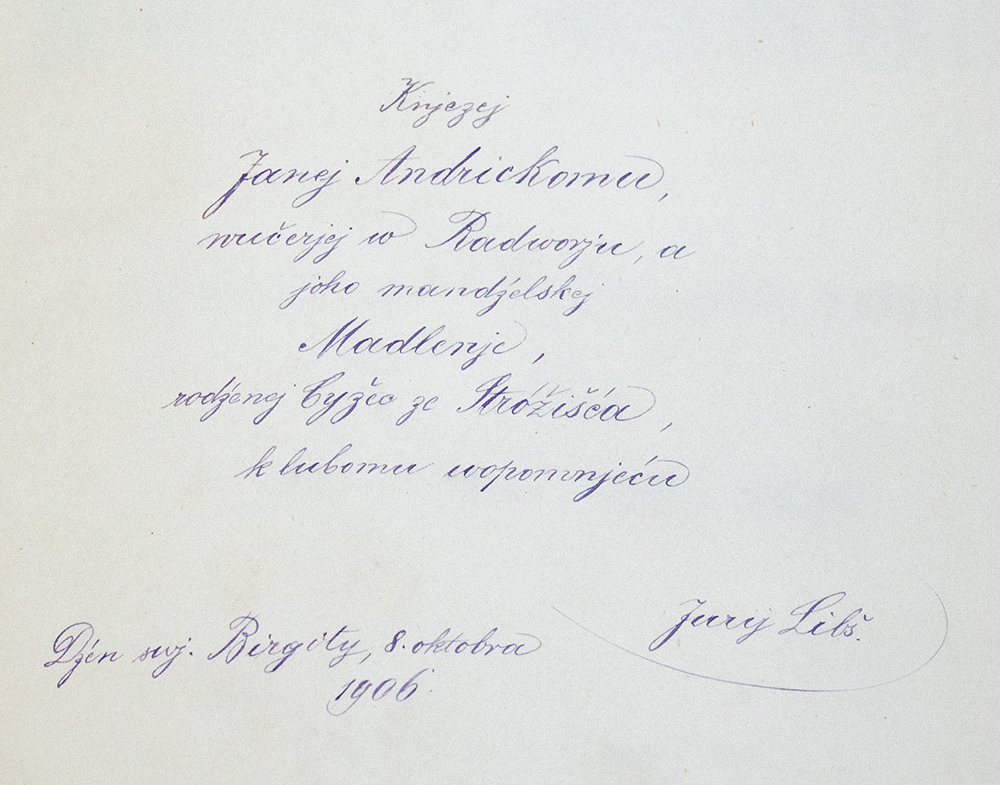 Knjezej
Janej Andrickomu,
wučerjej w Radworju, a
joho mandźelskej
Madlenje,
rodźenej Cyžec ze Stróžišća,
k lubomu wopomnjeću
Jurij Libš.
Dźen swj. Birgity, 8. oktobra
1906.